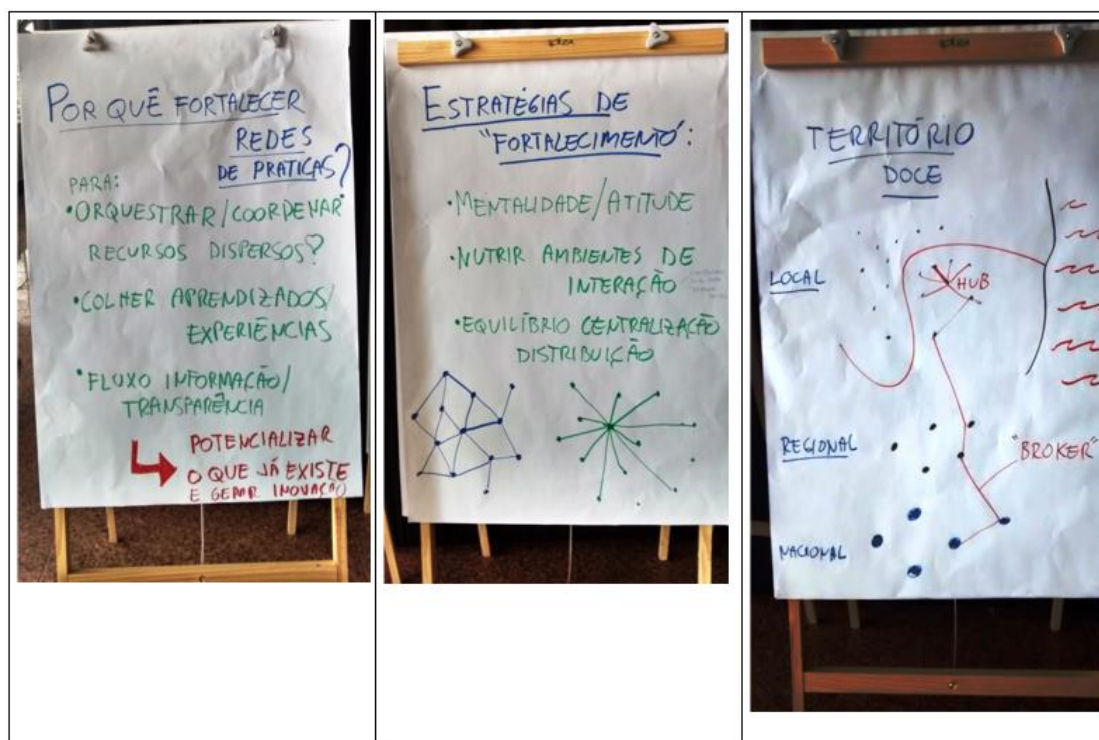 POR QUÊ FORTALECER
REDES
DE PRATICAS?
PARA:
•ORQUESTRAR/COORDENAR
RECURSOS DISPERSOS?
•COLHER APRENDIZADOS/
EXPERIÊNCIAS
•FLUXO INFORMAÇÃO/
TRANSPARÊNCIA
POTENCIALIZAR
O QUE JÁ EXISTE
E GERAR INOVAÇÃO
ESTRATÉGIAS DE
"FORTALECIMENTO":
•MENTALIDADE/ATITUDE
•NUTRIR AMBIENTES DE
INTERAÇÃO
•EQUILÍBRIO CENTRALIZAÇÃO
DISTRIBUIÇÃO
TERRITÓRIO
DOCE
LOCAL
HUB
REGIONAL
"BROKER"
NACIONAL